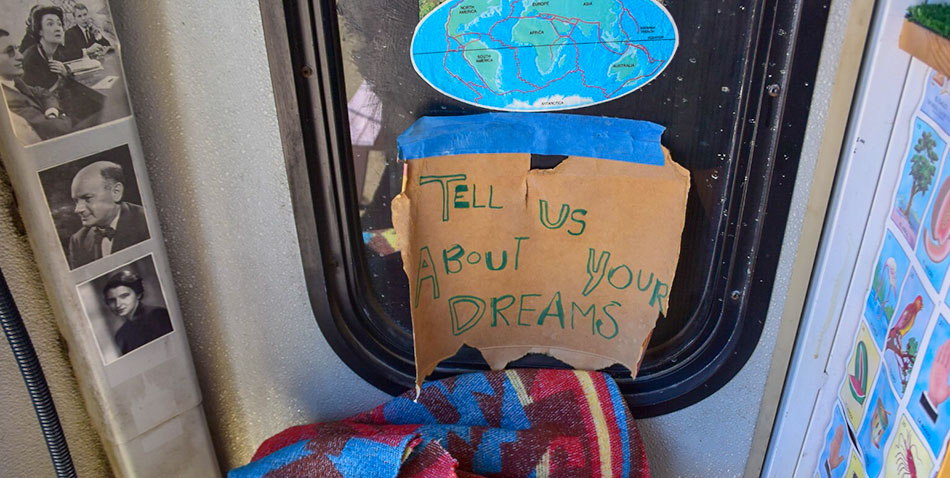 NORTH AMERICA
EUROPE
ASIA
AFRICA
SOUTH AMERICA
AUSTRALIA
ANTARCTICA
TELL US
ABOUT YOUR
DREAMS